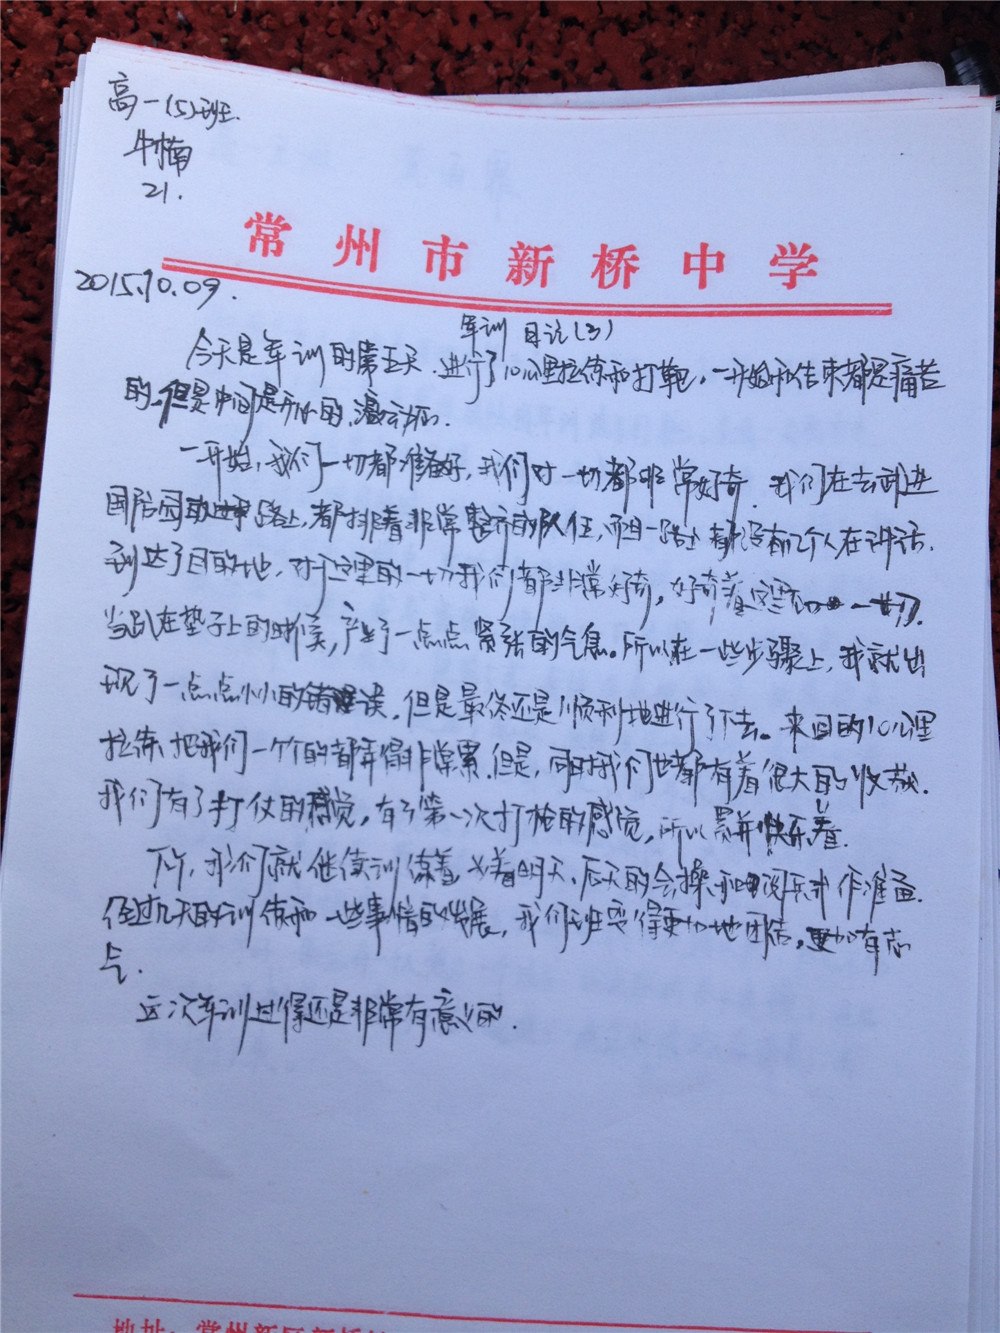 高一(5)班
牛楠
21.
常州市新桥中学
2015.10.09.
军训 日记(3)
今天是军训的第五天.进行了10公里拉练和打靶,一开始和结束都是痛苦
的,但是中间是开心的,激动的.
一开始,我们一切都准备好,我们对一切都非常好奇.我们在去武进
国防园的路上,都排着非常整齐的队伍,而且一路上都没有几个人在讲话.
到达了目的地,对于这里的一切我们都非常好奇,好奇着这里的一切.
当趴在垫子上的时候,产生了一点点紧张的气息。所以在一些步骤上,我就出
现了一点点小小的错误,但是最终还是顺利地进行了下去。来回的10公里
拉练把我们一个个的都弄得非常累.但是,同时我们也都有着很大的收获.
我们有了打仗的感觉,有了第一次打枪的感觉,所以累并快乐着.
下午,我们就继续训练着 为着明天、后天的会操和阅兵式作准备.
经过几天的训练和一些事情的发展,我们班变得更加地团结,更加有志
气.
这次军训过得还是非常有意义的.
地址:常州新区新桥